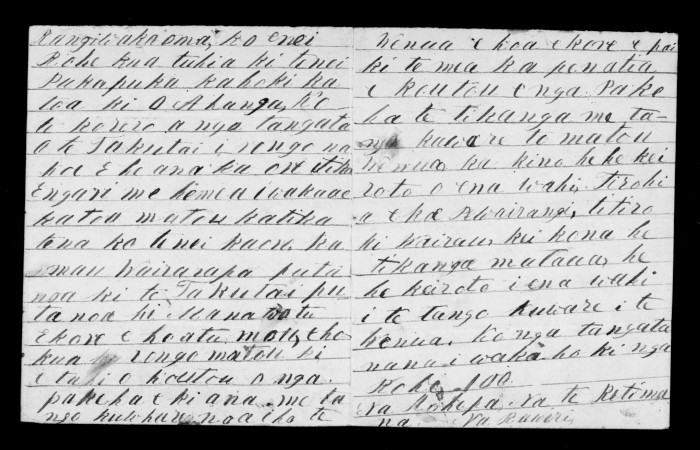 Rangiwakaoma, ko enei
Rohe kua tuhia ki tenei
Pukapuka kahoki ka
toa ki O Ahanga, Ko
te korero a nga tangata
O te Takutai i rongo na
koe E he ana ka ore tika
Engari me hemea i wakaae
katou matou katika
tena ko tenei kaore, ka
mau Wairarapa puta
noa ki te Takutai pu
ta noa ki Manawatu
Ekore e hoatu, mou, e ho
kua rongo matou ki
e tahi o koutou o nga
pakeha e ki ana me ta
ngo kuwhare noa iho te
Wenua e hoa ekore e pai
ki te mea ka penatia
e koutou e nga Pake
ha te tikanga me ta-
ngo kuware to matou
Wenua, ka kino he he kei
roto o ena wahi, Tirohi
a e hoa, titiro
ki Wairau, kei kona he
tikanga mataua, he
he keiroto i ena wahi
i te tango kuware i te
Wenua, Ko nga tangata
nana i waka ho ki nga
Rohe
Na Te Kotima
na Na Rawiri